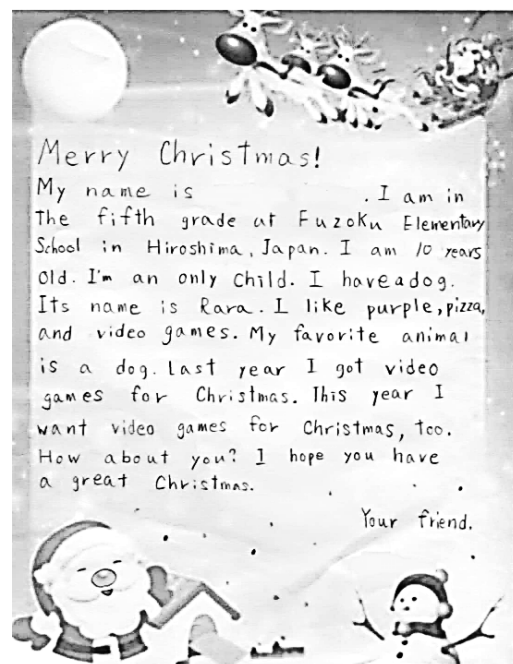 Merry Christmas!
My name is . I am in
The fifth grade at Fuzoku Elementary
School in Hiroshima, Japan. I am 10 years
Old. I'm an only child. I have a dog.
Its name is Rara. I like purple, pizza,
and video games. My favorite animal
is a dog. Last year I got video
games for Christmas. This year I
want video games for Christmas, too.
How about you? I hope you have
a great Christmas.
Your friend.